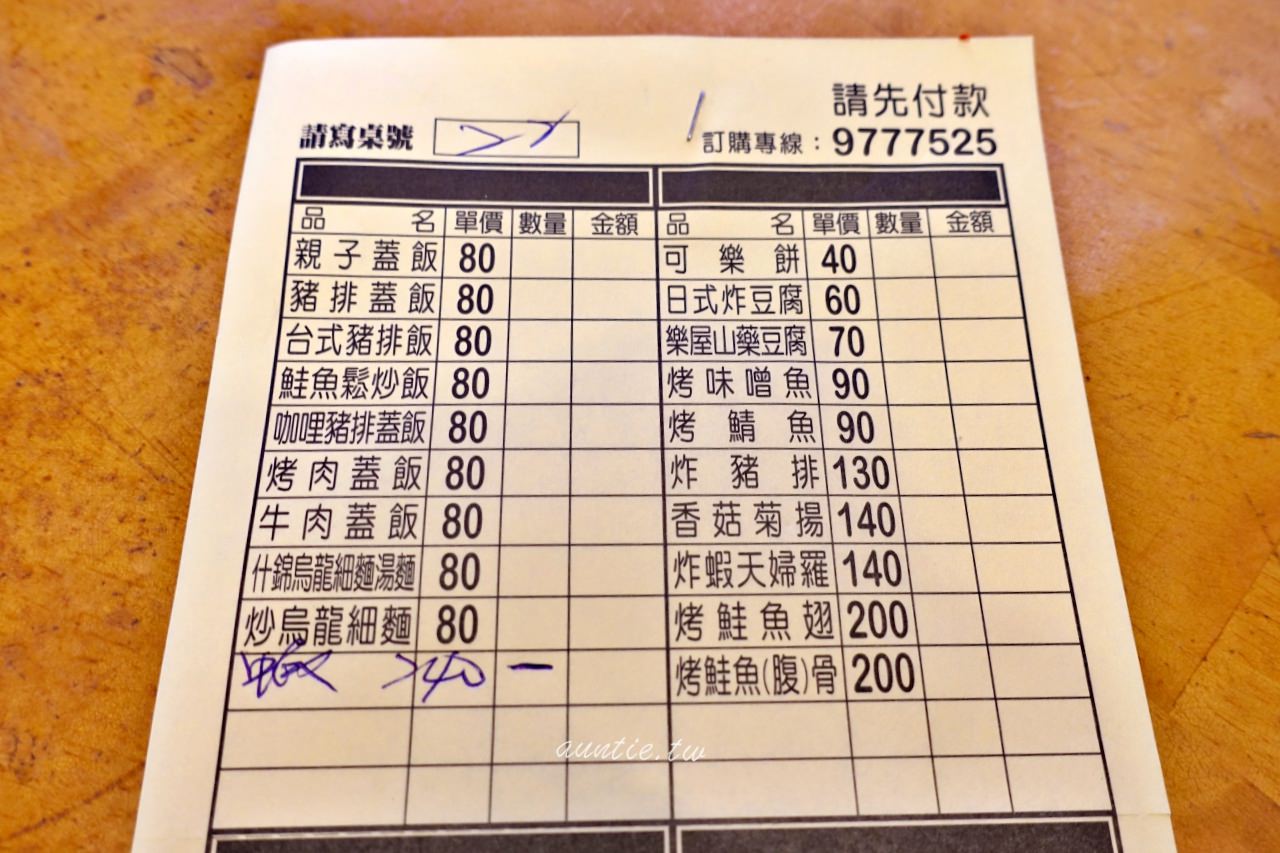 請先付款
請寫桌號 22
訂購專線：9777525
品名 單價 數量 金額 品名 單價 數量 金額
親子蓋飯 80 可樂餅 40
豬排蓋飯 80 日式炸豆腐 60
台式豬排飯 80 樂屋山藥豆腐 70
鮭魚鬆炒飯 80 烤味噌魚 90
咖哩豬排蓋飯 80 烤鯖魚 90
烤肉蓋飯 80 炸豬排 130
牛肉蓋飯 80 香菇菊揚 140
什錦烏龍細麵湯麵 80 炸蝦天婦羅 140
炒烏龍細麵 80 烤鮭魚翅 200
240 一 烤鮭魚(腹)骨 200
auntie.tw